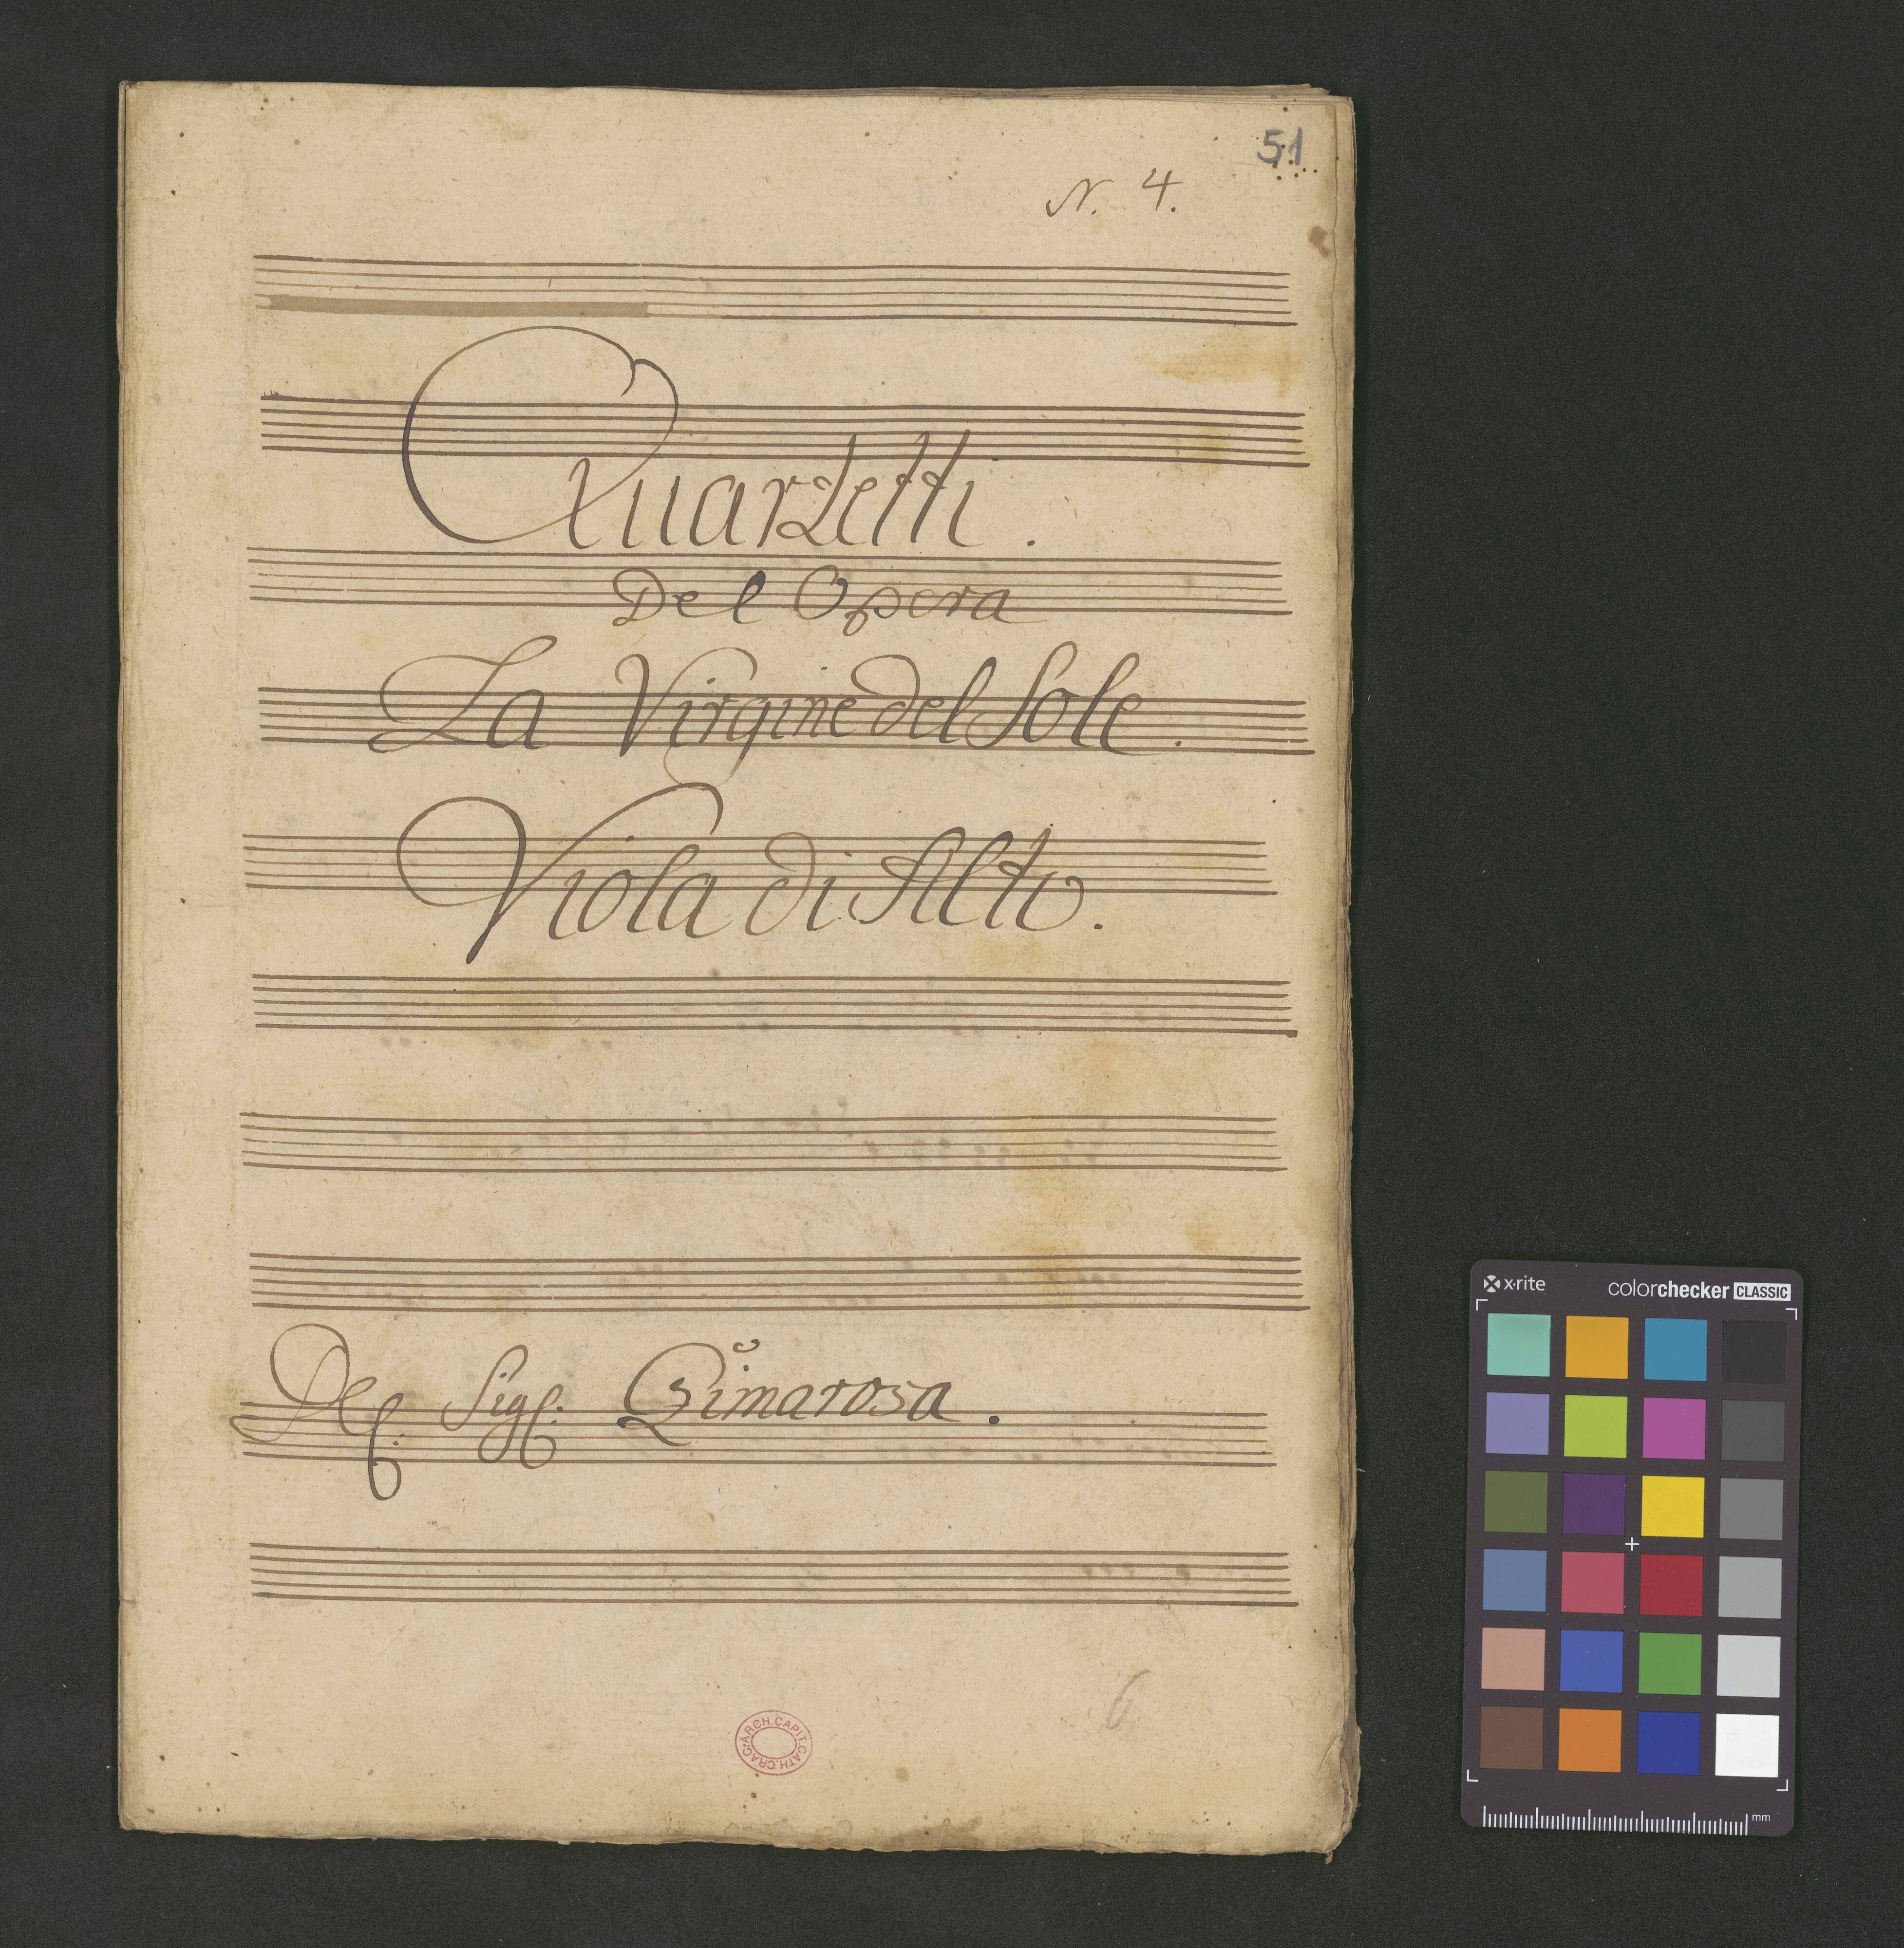 51
N. 4.
Quartetti.
Del Opera
La Virgine del Sole.
Viola di Alto.
Del Sigl: Cimarosa.
6
ARCH.CAPIT.CATH.CRAC.
x·rite colorchecker CLASSIC
mm